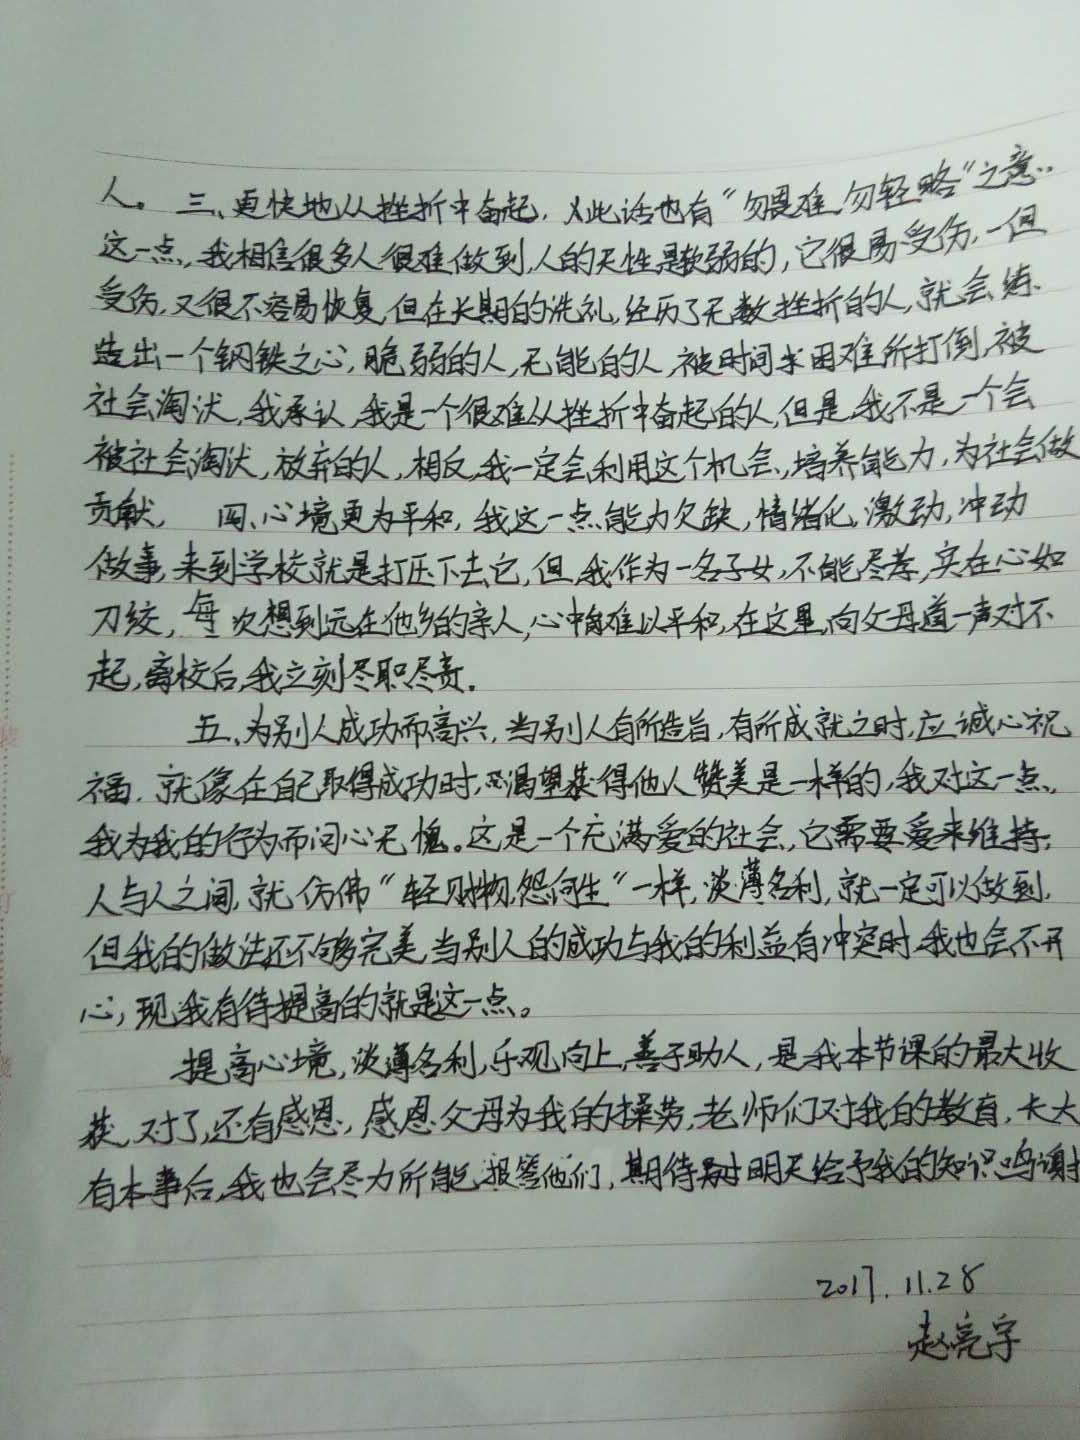 人。 三、更快地从挫折中奋起, 从此话也有“勿畏难,勿轻略”之意..
这一点,我相信很多人很难做到,人的天性是软弱的,它很易受伤,一但
受伤,又很不容易恢复,但在长期的洗礼,经历了无数挫折的人,就会练
造出一个钢铁之心,脆弱的人,无能的人,被时间困难所打倒,被
社会淘汰,我承认,我是一个很难从挫折中奋起的人,但是,我不是一个会
被社会淘汰,放弃的人,相反,我一定会利用这个机会,培养能力,为社会做
贡献, 四、心境更为平和,我这一点能力欠缺,情绪化,激动,冲动
做事,来到学校就是打压下去它,但,我作为一名子女,不能尽孝,实在心如
刀绞,每次想到远在他乡的亲人,心中难以平和,在这里,向父母道一声对不
起,离校后,我立刻尽职尽责.
五、为别人成功而高兴,当别人有所造旨,有所成就之时,应诚心祝
福.就像在自己取得成功时,渴望获得他人赞美是一样的,我对这一点,
我为我的行为而问心无愧。这是一个充满爱的社会,它需要爱来维持,
人与人之间,就仿佛“轻财物,怨何生”一样,淡薄名利,就一定可以做到,
但我的做法还不够完美,当别人的成功与我的利益有冲突时,我也会不开
心,现我有待提高的就是这一点。
提高心境,淡薄名利,乐观向上,善于助人,是我本节课的最大收
获,对了,还有感恩,感恩父母为我的操劳,老师们对我的教育,长大
有本事后,我也会尽力所能,报答他们,期待明天给予我的知识鸣谢
2017.11.28
赵亮宇